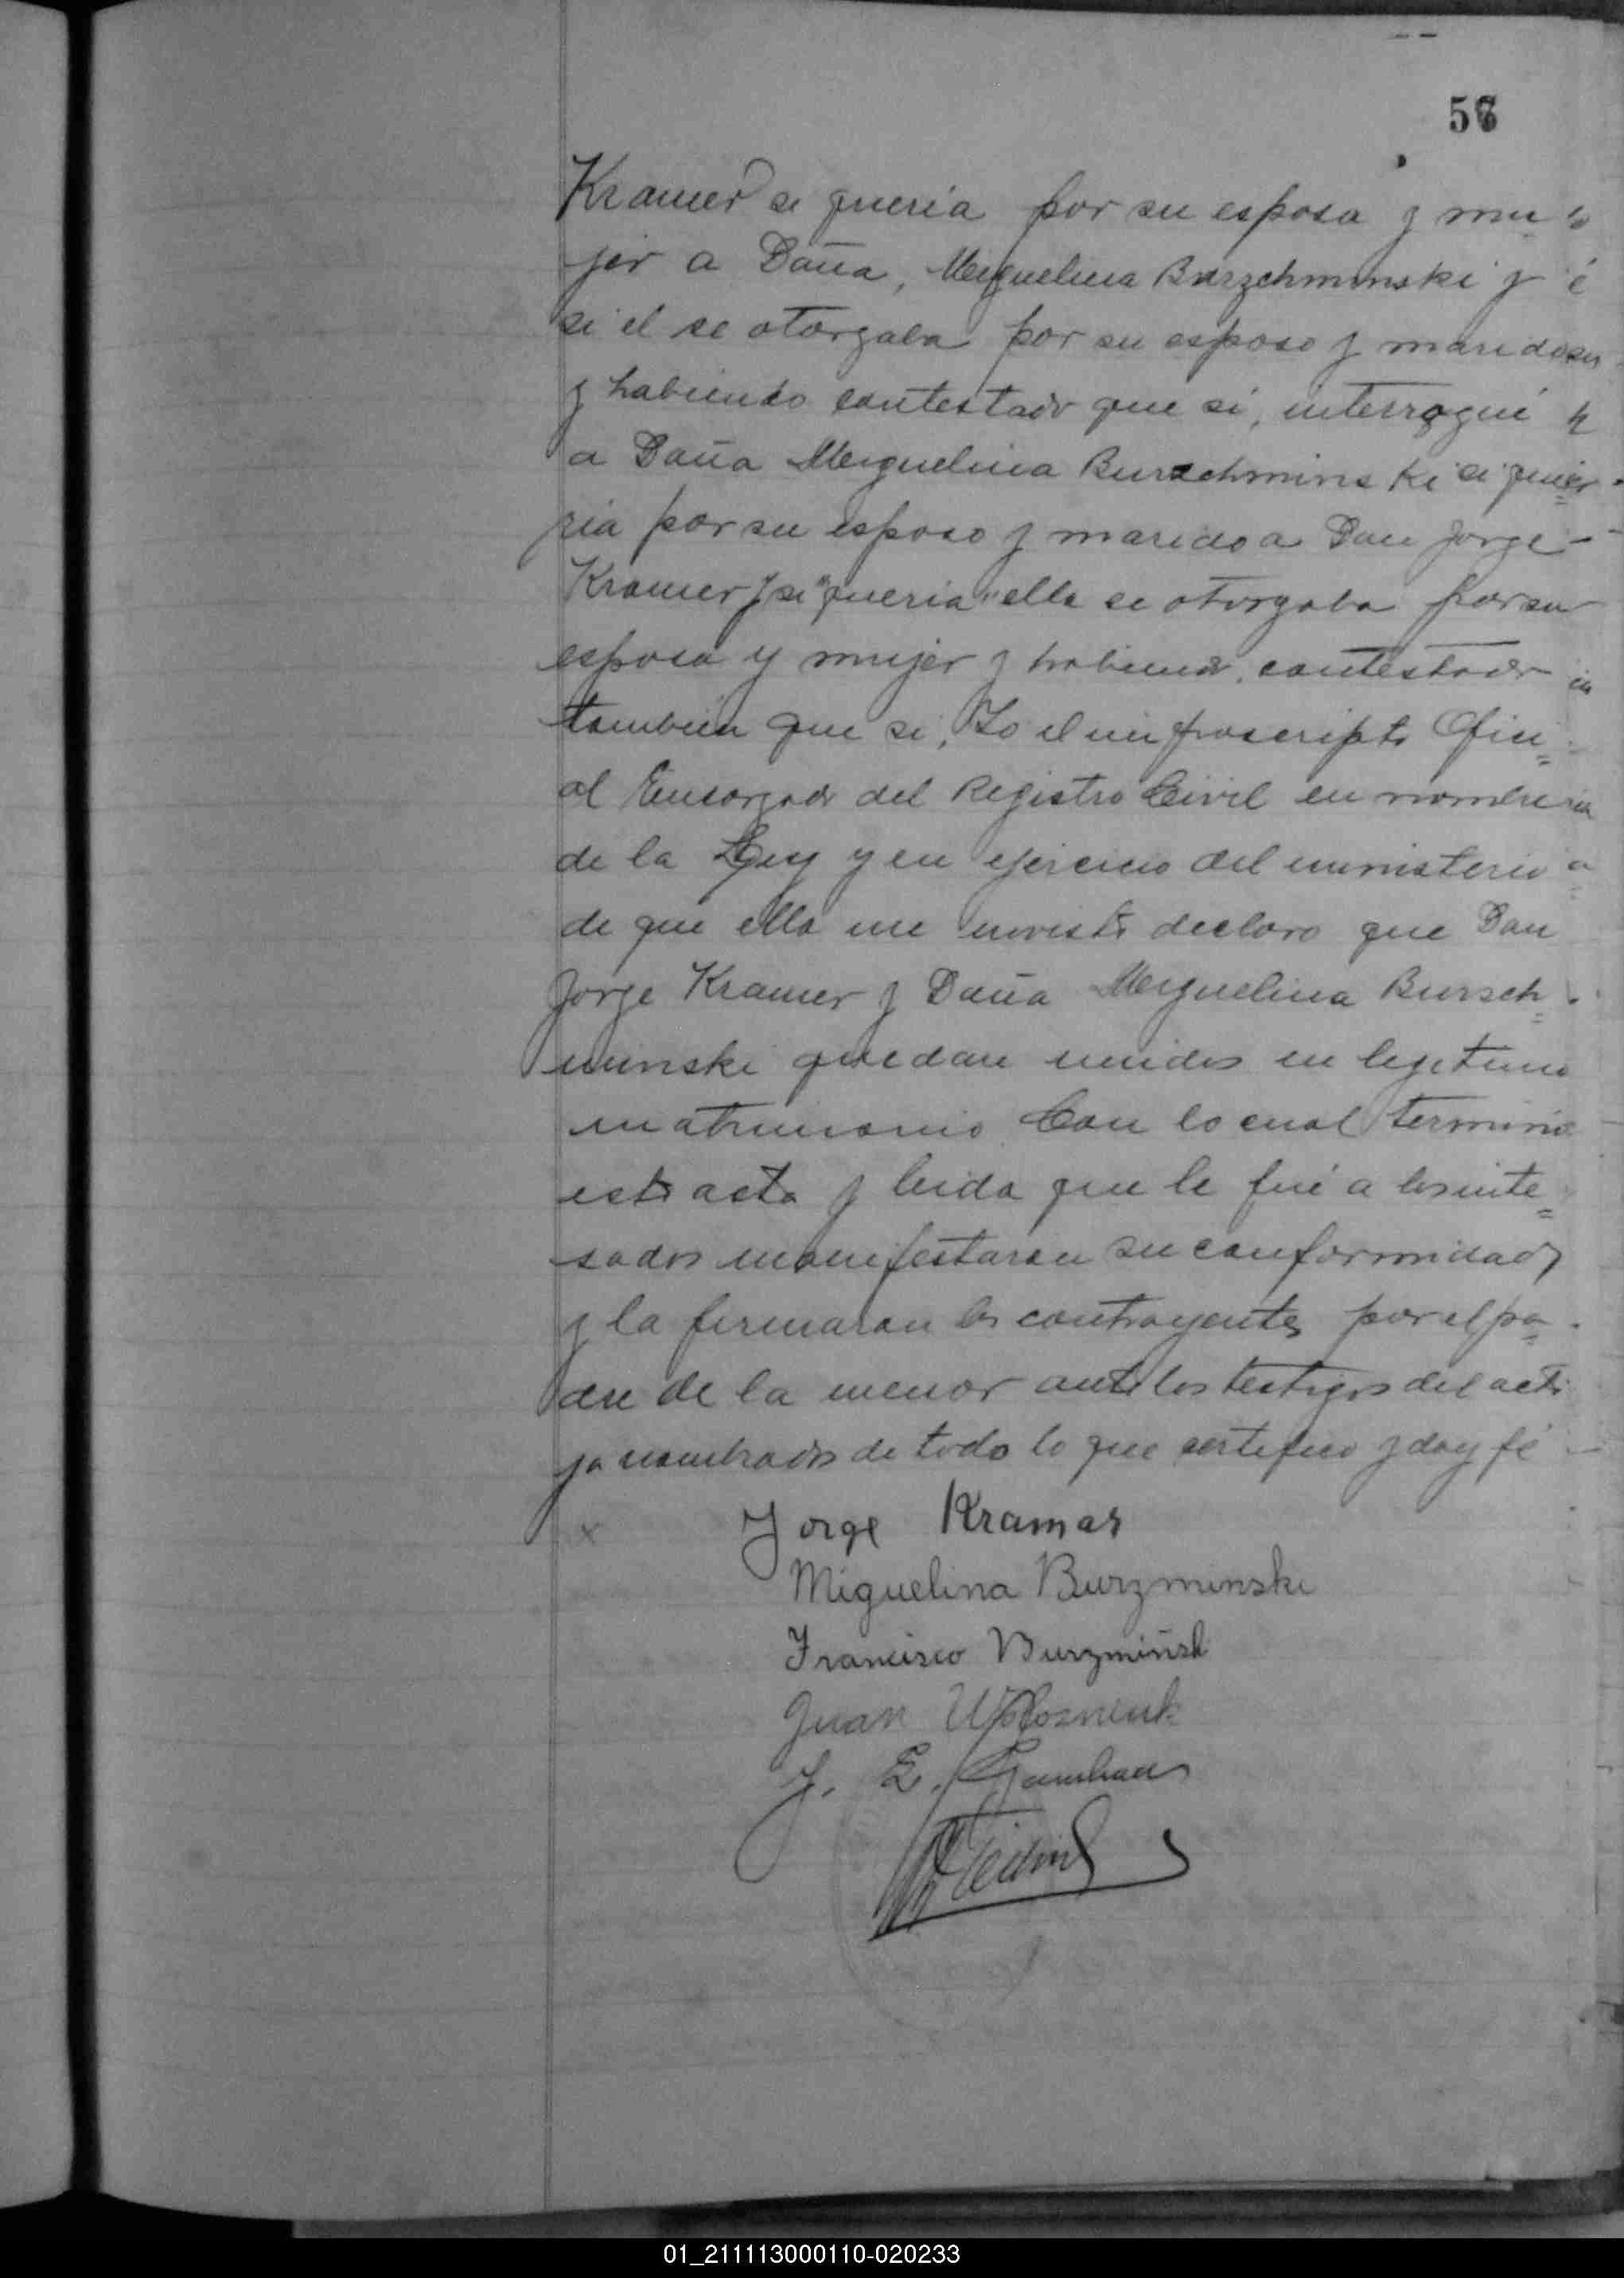 56
Kramer si queria por su esposa y mu
jer a Doña, Miguelina Burzchminski y
si el se otorgaba por su esposo y marido
y habiendo contestado que si, interrogué
a Doña Miguelina Burschminski si que
ria por su esposo y marido a Don Jorge
Kramer y si "queria" ella se otorgaba por su
esposa y mujer y habiendo, contestado
tambien que si, Yo el infrascripto Ofici=
al Encargado del Registro Civil en nombre
de la Ley y en ejercicio del ministerio
de que ella me inviste declaro que Don
Jorge Kramer y Doña Miguelina Bursch=
minski quedan unidos en legitimo
matrimonio Con lo cual termino
esta acta y leida que le fué a los inte=
sados manifestaron su conformidad
y la firmaron los contrayentes por el pa=
dre de la menor ante los testigos del acto
ya nombrados de todo lo que certifico y doy fé
x Jorge Kramar
Miguelina Burzminski
Francisco Burzmiński
Juan
J. E.
01_211113000110-020233